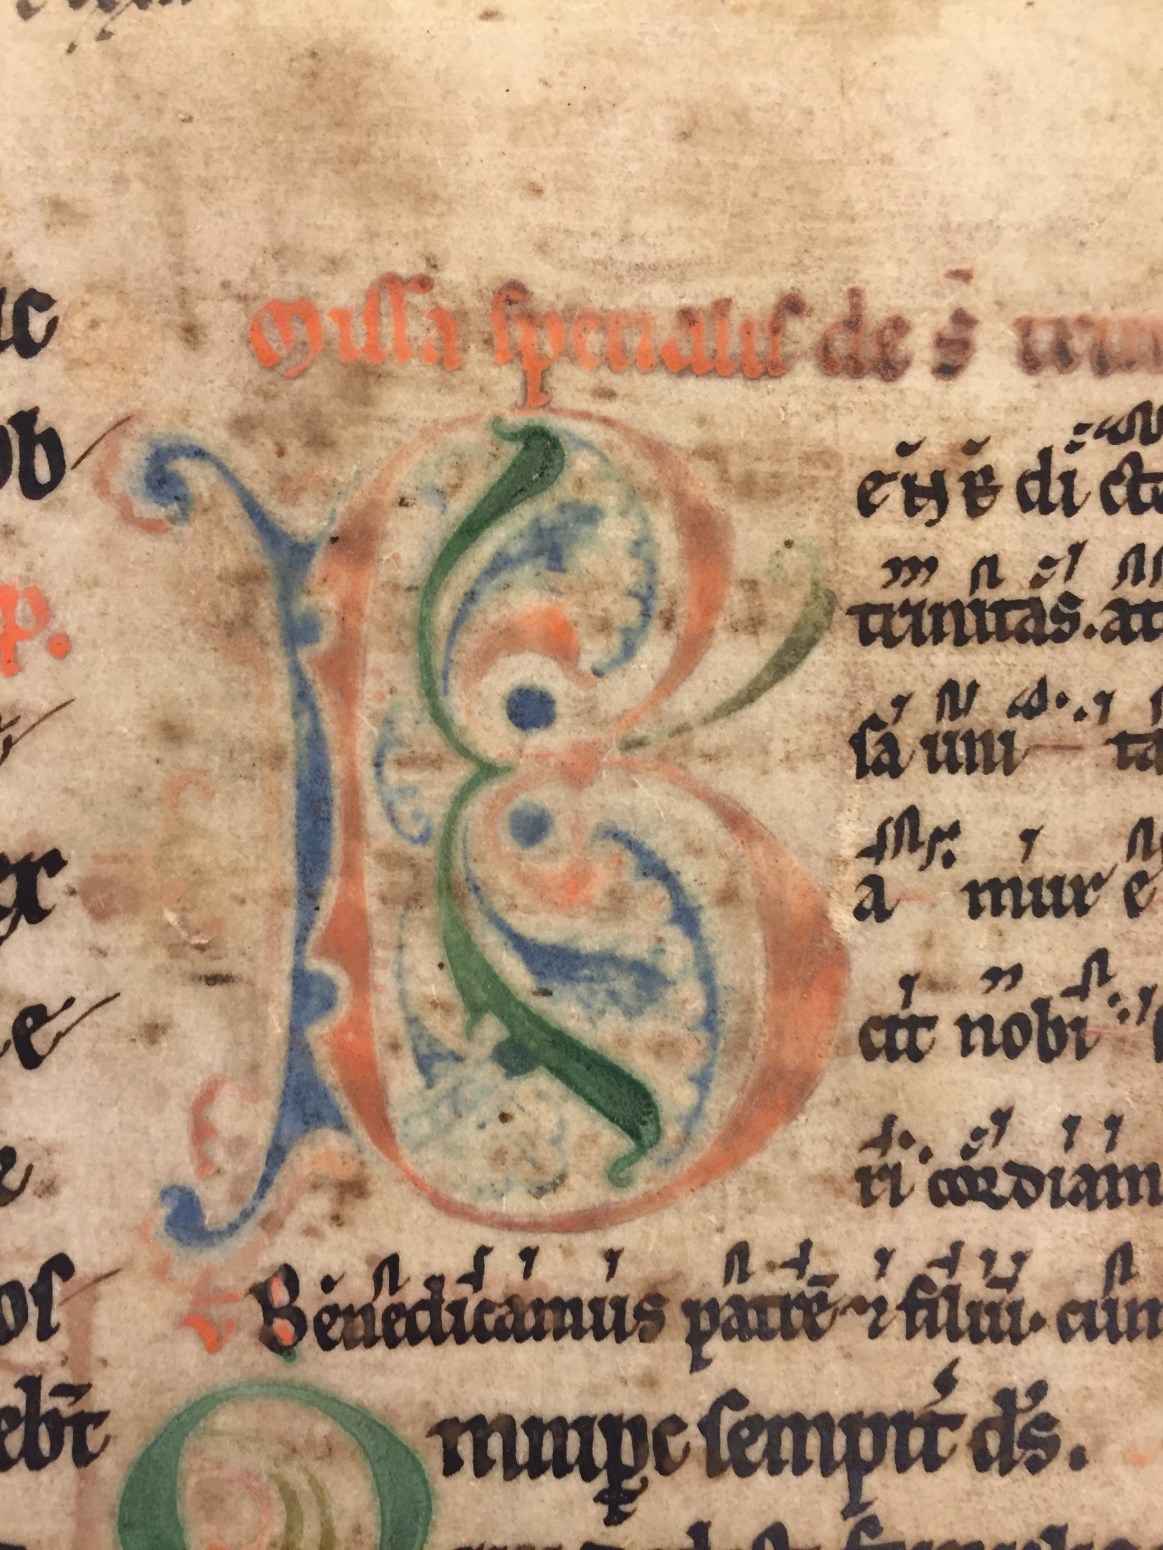 uc
ob
p.
ex
e
e
os
ebr̄t
Missa specialis de s̄ trini
B
trinitas.at
sa uni ta
a mur e
cit nobi
ri cordiam
Benedicamus patrē ⁊ filiū. cum
O
mnip̱c sempit̄ ds̄.